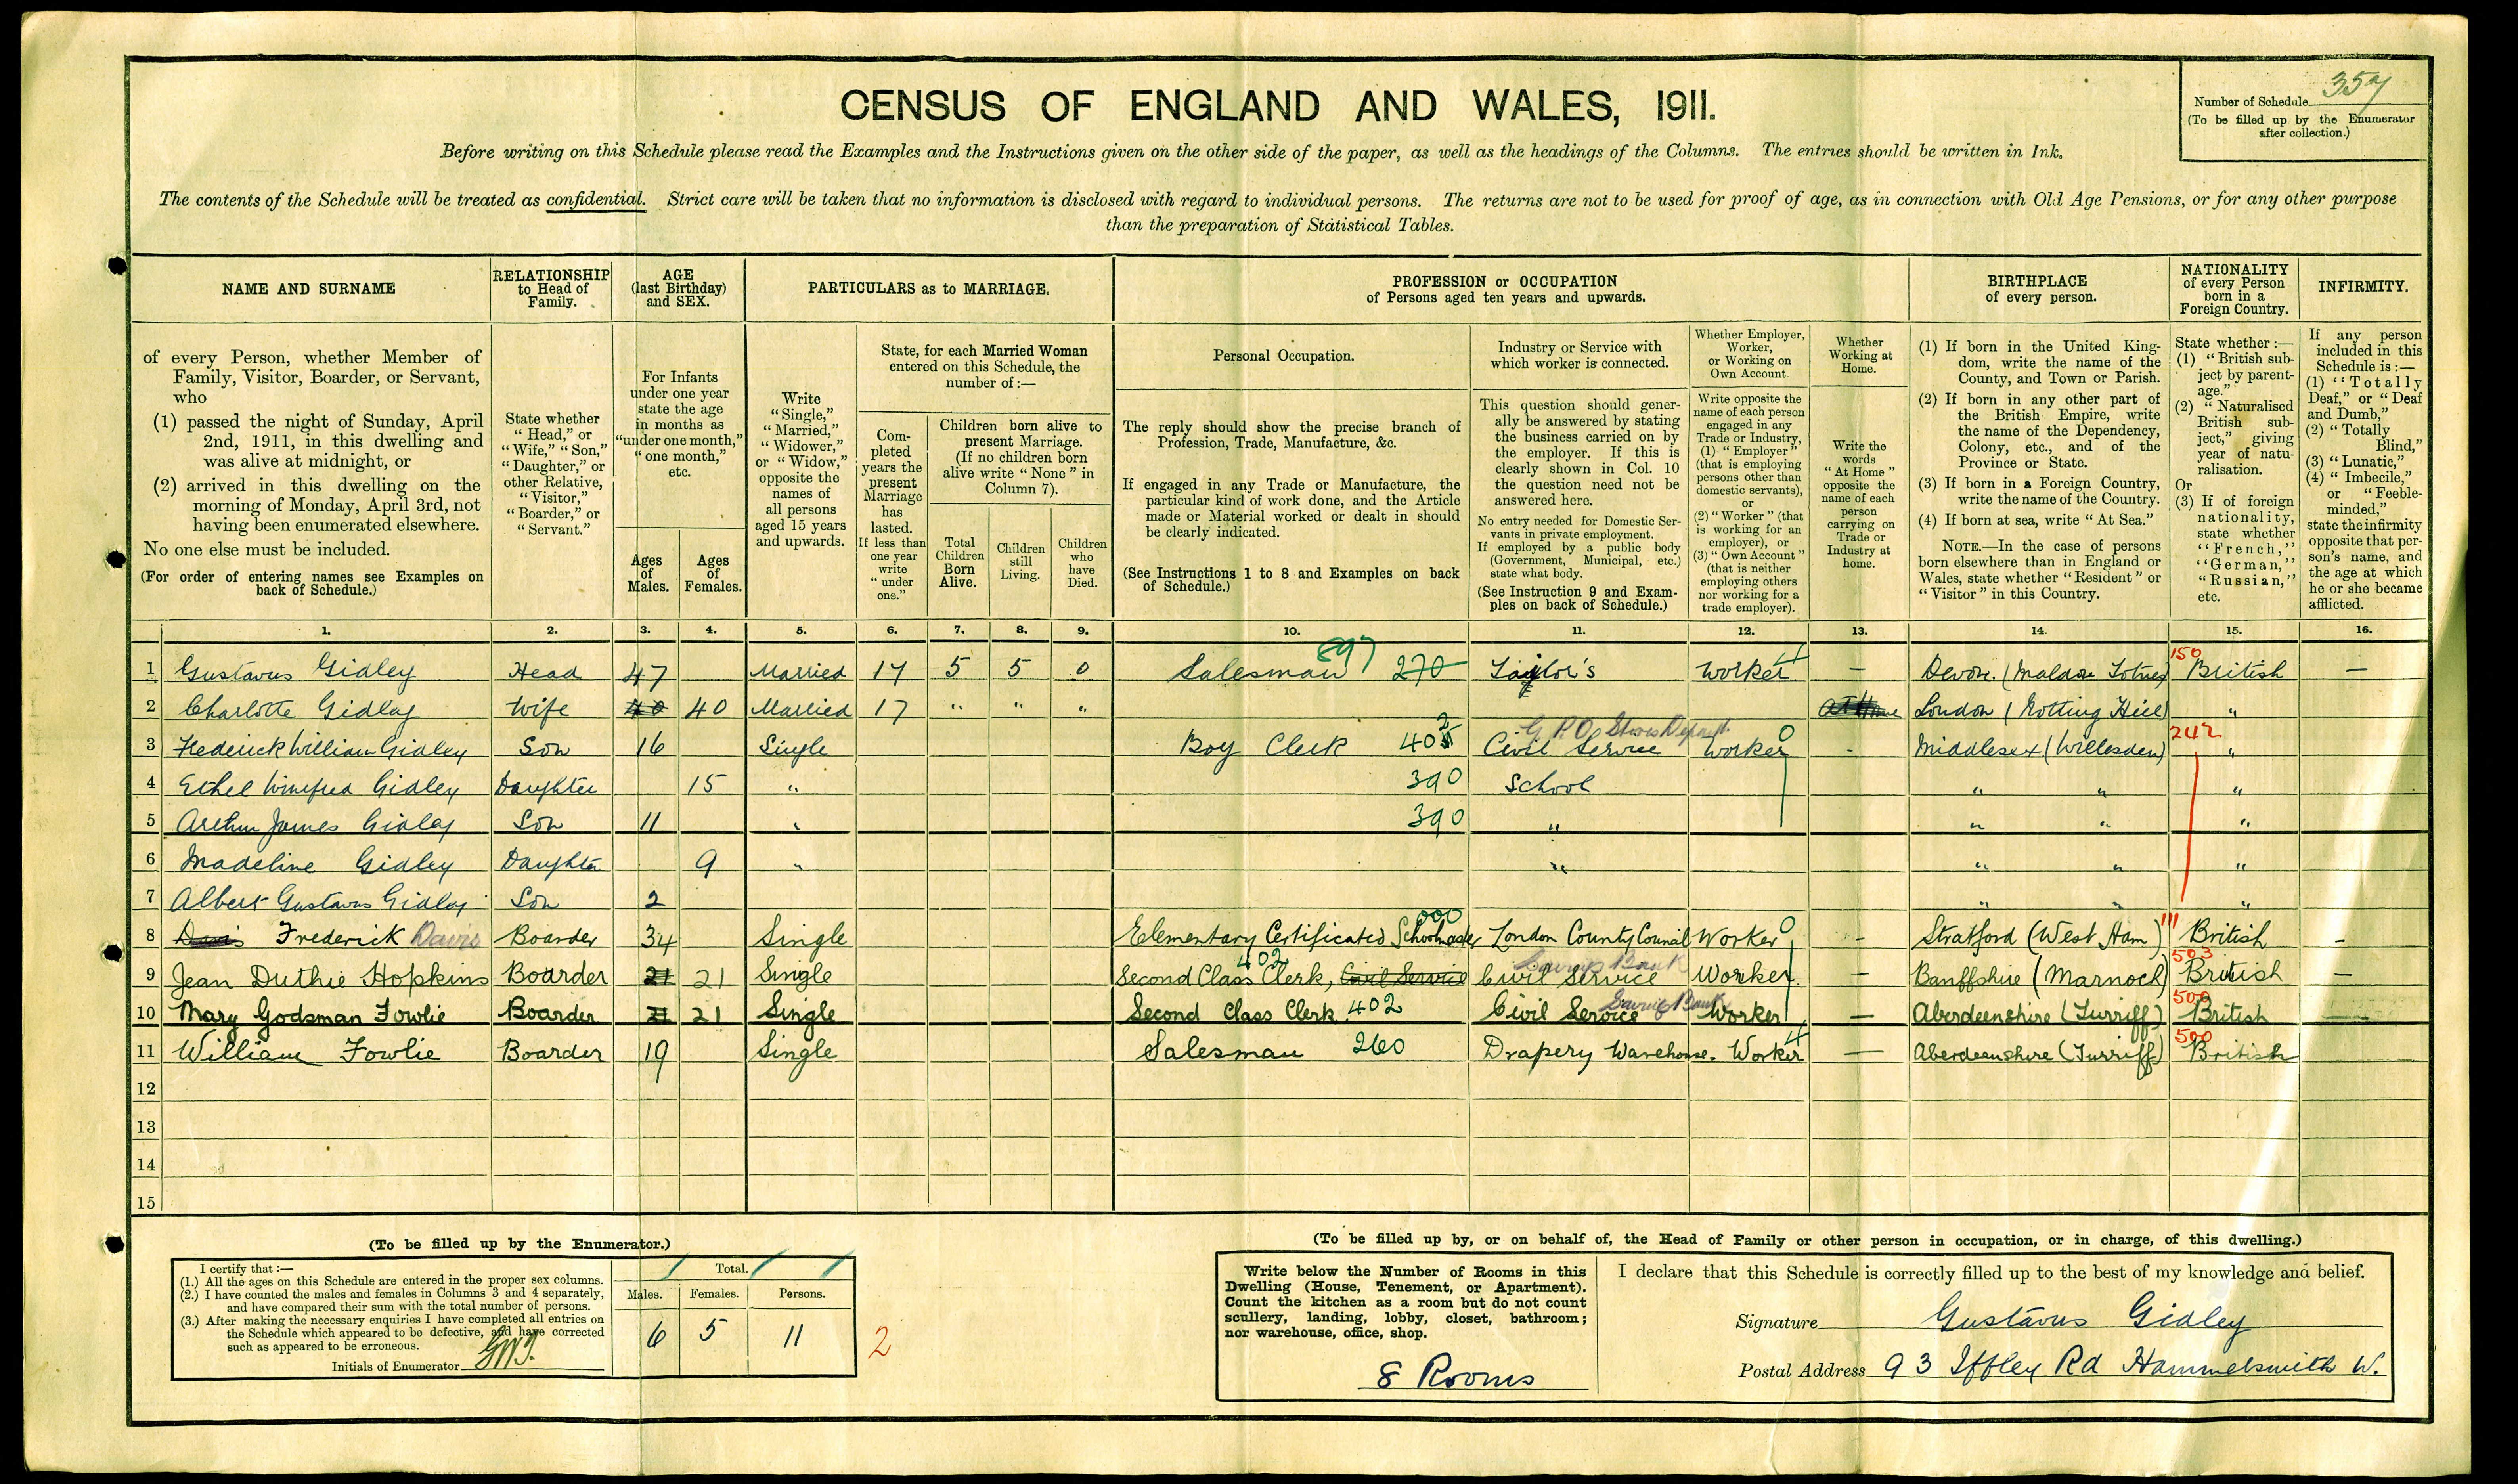 CENSUS OF ENGLAND AND WALES, 1911.
Number of Schedule 357
(To be filled up by the Enumerator
after collection.)
Before writing on this Schedule please read the Examples and the Instructions given on the other side of the paper, as well as the headings of the Columns. The entries should be written in Ink.
The contents of the Schedule will be treated as confidential. Strict care will be taken that no information is disclosed with regard to individual persons. The returns are not to be used for proof of age, as in connection with Old Age Pensions, or for any other purpose
than the preparation of Statistical Tables.
NAME AND SURNAME
of every Person, whether Member of
Family, Visitor, Boarder, or Servant,
who
(1) passed the night of Sunday, April
2nd, 1911, in this dwelling and
was alive at midnight, or
(2) arrived in this dwelling on the
morning of Monday, April 3rd, not
having been enumerated elsewhere.
No one else must be included.
(For order of entering names see Examples on
back of Schedule.)
RELATIONSHIP
to Head of
Family.
State whether
"Head," or
"Wife," "Son,"
"Daughter," or
other Relative,
"Visitor,"
"Boarder," or
"Servant."
AGE
(last Birthday)
and SEX.
For Infants
under one year
state the age
in months as
"under one month,"
"one month,"
etc.
Ages
of
Males.
Ages
of
Females.
PARTICULARS as to MARRIAGE.
Write
"Single,"
"Married,"
"Widower,"
or "Widow,"
opposite the
names of
all persons
aged 15 years
and upwards.
State, for each Married Woman
entered on this Schedule, the
number of:—
Com-
pleted
years the
present
Marriage
has
lasted.
If less than
one year
write
"under
one."
Children born alive to
present Marriage.
(If no children born
alive write "None" in
Column 7).
Total
Children
Born
Alive.
Children
still
Living.
Children
who
have
Died.
PROFESSION or OCCUPATION
of Persons aged ten years and upwards.
Personal Occupation.
The reply should show the precise branch of
Profession, Trade, Manufacture, &c.
If engaged in any Trade or Manufacture, the
particular kind of work done, and the Article
made or Material worked or dealt in should
be clearly indicated.
(See Instructions 1 to 8 and Examples on back
of Schedule.)
Industry or Service with
which worker is connected.
This question should gener-
ally be answered by stating
the business carried on by
the employer. If this is
clearly shown in Col. 10
the question need not be
answered here.
No entry needed for Domestic Ser-
vants in private employment.
If employed by a public body
(Government, Municipal, etc.)
state what body.
(See Instruction 9 and Exam-
ples on back of Schedule.)
Whether Employer,
Worker,
or Working on
Own Account.
Write opposite the
name of each person
engaged in any
Trade or Industry,
(1) "Employer"
(that is employing
persons other than
domestic servants),
or
(2) "Worker" (that
is working for an
employer), or
(3) "Own Account"
(that is neither
employing others
nor working for a
trade employer).
Whether
Working at
Home.
Write the
words
"At Home"
opposite the
name of each
person
carrying on
Trade or
Industry at
home.
BIRTHPLACE
of every person.
(1) If born in the United King-
dom, write the name of the
County, and Town or Parish.
(2) If born in any other part of
the British Empire, write
the name of the Dependency,
Colony, etc., and of the
Province or State.
(3) If born in a Foreign Country,
write the name of the Country.
(4) If born at sea, write "At Sea."
NOTE.—In the case of persons
born elsewhere than in England or
Wales, state whether "Resident" or
"Visitor" in this Country.
NATIONALITY
of every Person
born in a
Foreign Country.
State whether :—
(1) "British sub-
ject by parent-
age."
(2) "Naturalised
British sub-
ject," giving
year of natu-
ralisation.
Or
(3) If of foreign
nationality,
state whether
"French,"
"German,"
"Russian,"
etc.
INFIRMITY.
If any person
included in this
Schedule is:—
(1) "Totally
Deaf," or "Deaf
and Dumb,"
(2) "Totally
Blind,"
(3) "Lunatic,"
(4) "Imbecile,"
or "Feeble-
minded,"
state the infirmity
opposite that per-
son's name, and
the age at which
he or she became
afflicted.
1. 2. 3. 4. 5. 6. 7. 8. 9. 10. 11. 12. 13. 14. 15. 16.
1 Gustavus Gidley Head 47 Married 17 5 5 0 Salesman 270 897 Taylor's Worker 4 — Devon. (Maldon Totnes) 150 British —
2 Charlotte Gidley Wife 40 40 Married 17 " " " At Home London (Notting Hill) "
3 Frederick William Gidley Son 16 Single Boy Clerk 402 Civil Service G.P.O. Stores Worker 0 - Middlesex (Willesden) 242 "
4 Ethel Winifred Gidley Daughter 15 " 390 School " " "
5 Arthur James Gidley Son 11 " 390 " " " "
6 Madeline Gidley Daughter 9 " " " " "
7 Albert Gustavus Gidley Son 2 " " "
8 Davis Frederick Davis Boarder 34 Single Elementary Certificated Schoolmaster 000 London County Council Worker 0 — Stratford (West Ham) 111 British -
9 Jean Duthie Hopkins Boarder 21 21 Single Second Class Clerk, Civil Service 402 Civil Service Savings Bank Worker — Banffshire (Marnoch) 503 British —
10 Mary Godsman Fowlie Boarder 21 21 Single Second Class Clerk 402 Civil Service Savings Bank Worker — Aberdeenshire (Turriff) 500 British —
11 William Fowlie Boarder 19 Single Salesman 260 Drapery Warehouse. Worker 4 — Aberdeenshire (Turriff) 500 British
12
13
14
15
(To be filled up by the Enumerator.)
I certify that:—
(1.) All the ages on this Schedule are entered in the proper sex columns.
(2.) I have counted the males and females in Columns 3 and 4 separately,
and have compared their sum with the total number of persons.
(3.) After making the necessary enquiries I have completed all entries on
the Schedule which appeared to be defective, and have corrected
such as appeared to be erroneous.
Initials of Enumerator
Total.
Males. Females. Persons.
6 5 11
2
(To be filled up by, or on behalf of, the Head of Family or other person in occupation, or in charge, of this dwelling.)
Write below the Number of Rooms in this
Dwelling (House, Tenement, or Apartment).
Count the kitchen as a room but do not count
scullery, landing, lobby, closet, bathroom;
nor warehouse, office, shop.
8 Rooms
I declare that this Schedule is correctly filled up to the best of my knowledge and belief.
Signature Gustavus Gidley
Postal Address 93 Iffley Rd Hammersmith W.